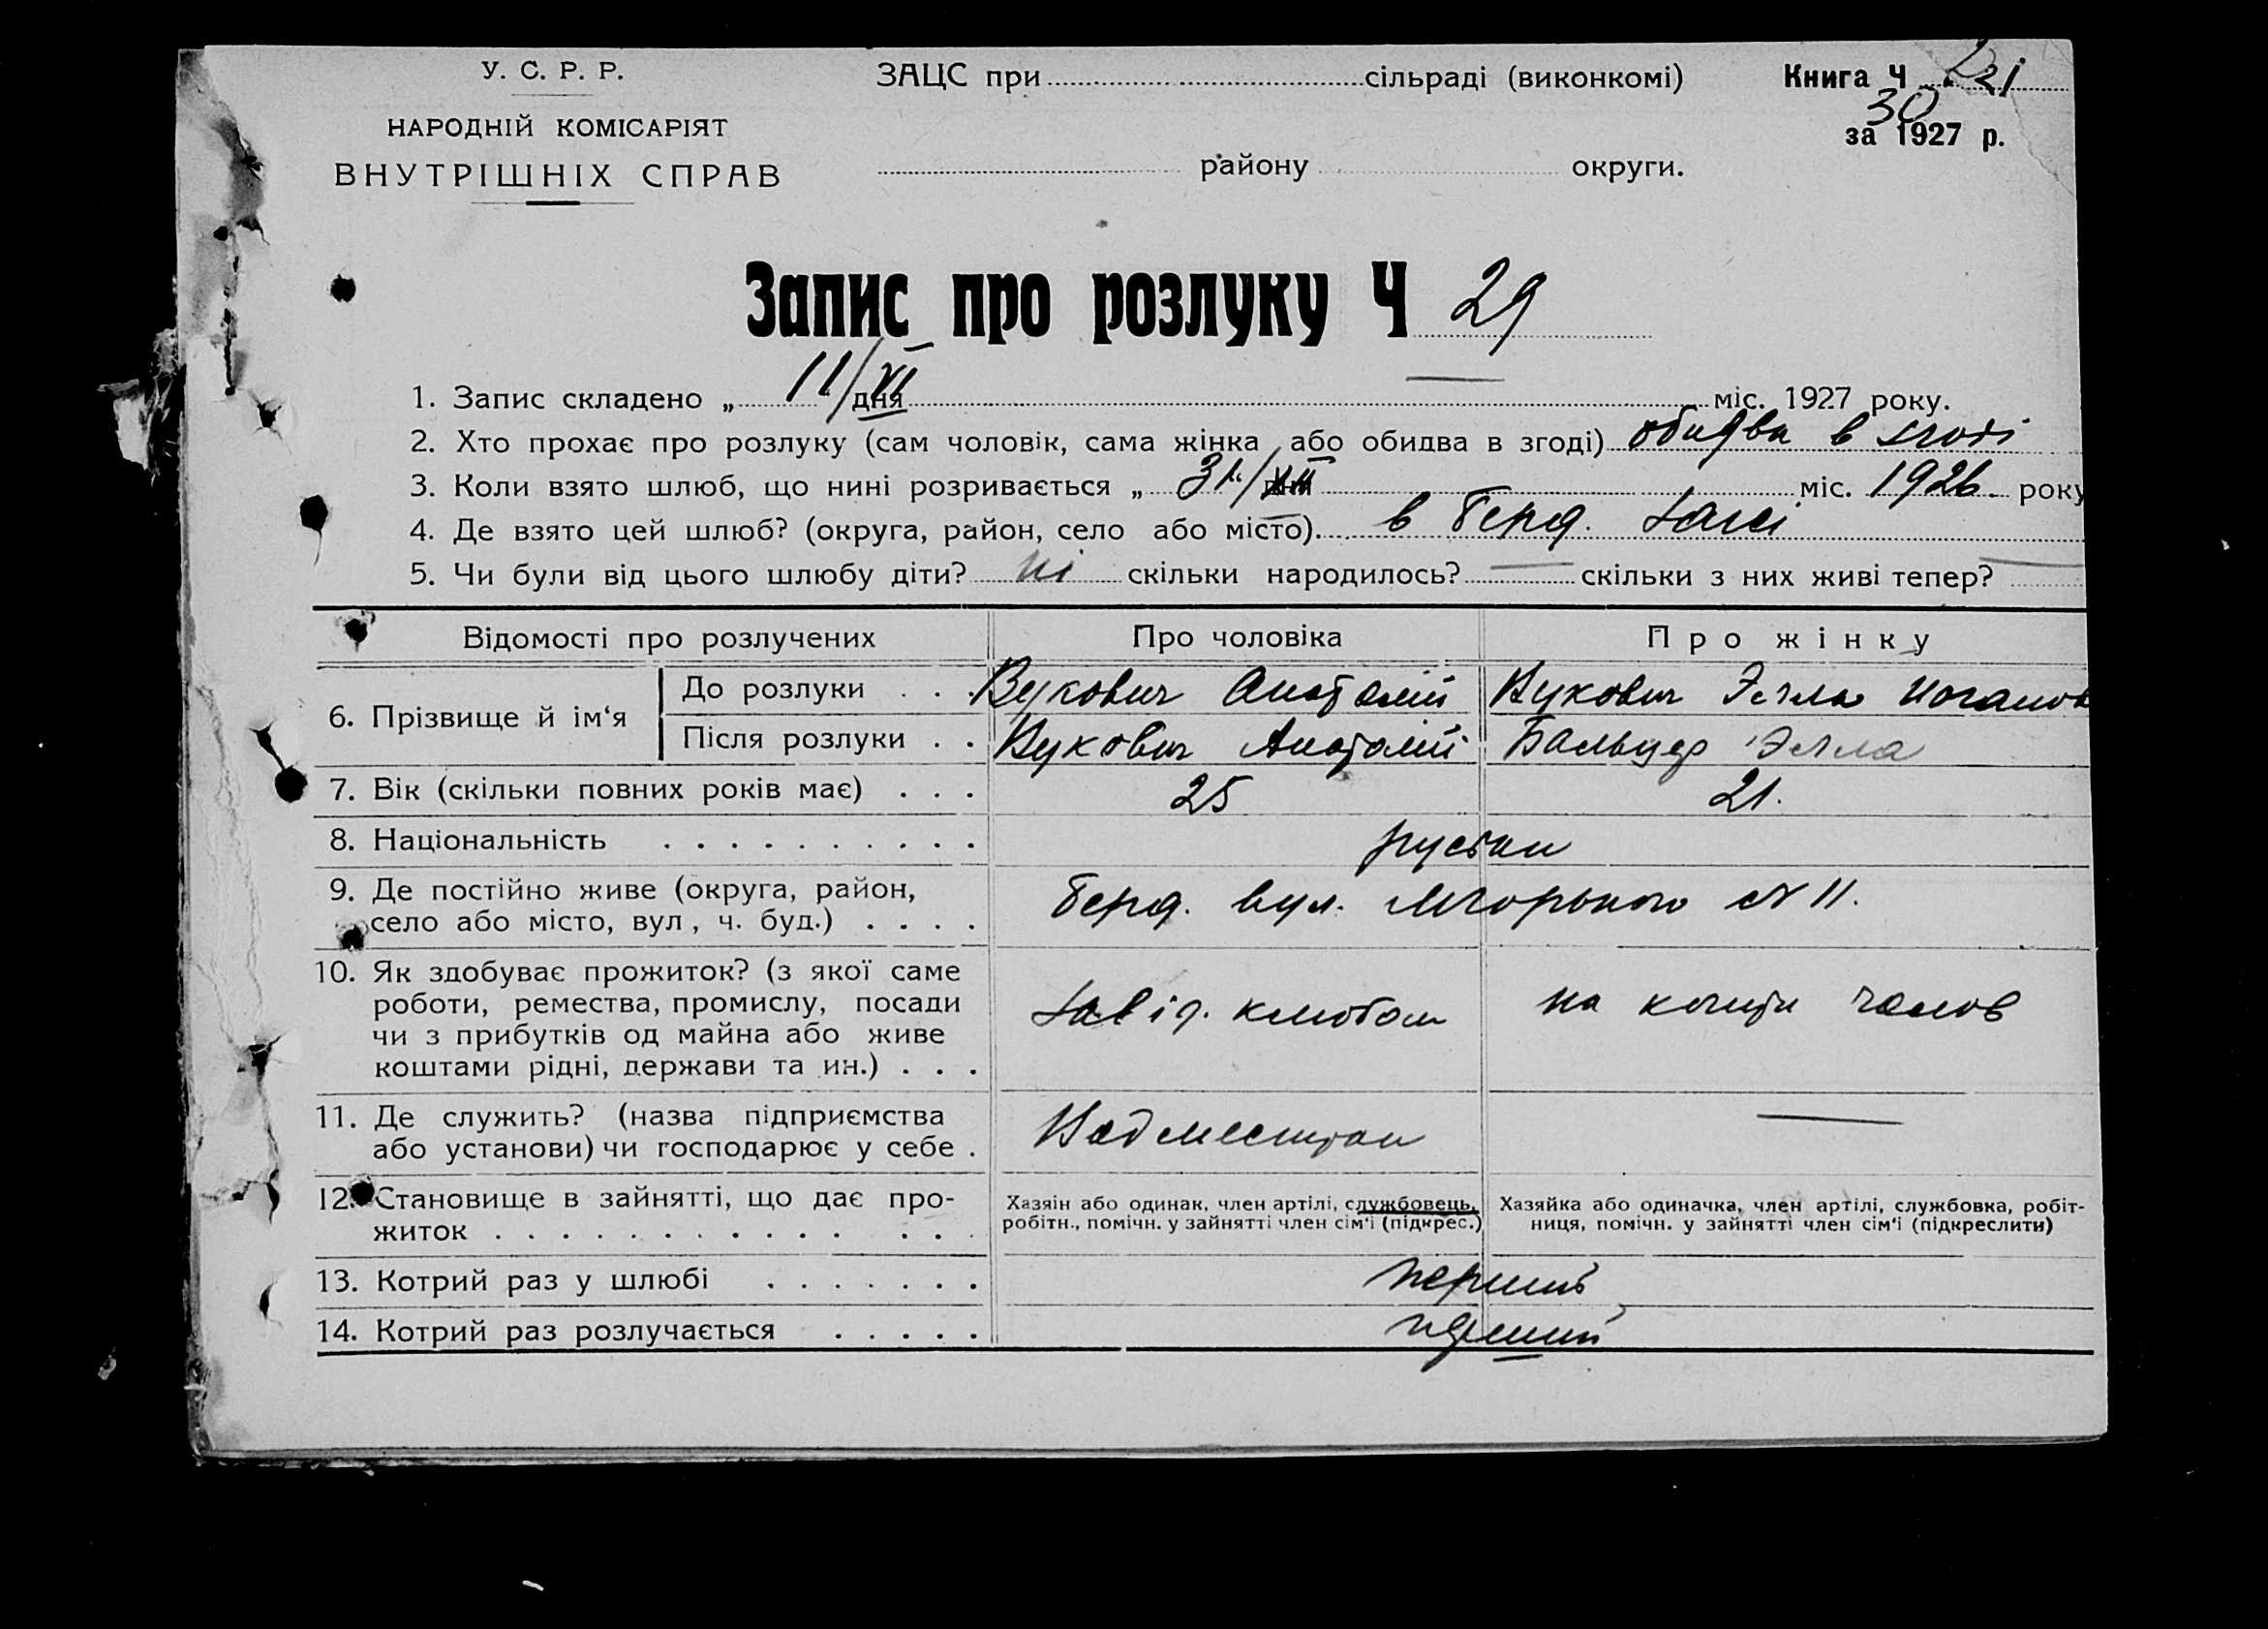 У. С. Р. Р.
НАРОДНІЙ КОМІСАРІЯТ
ВНУТРІШНІХ СПРАВ
ЗАЦС при сільраді (виконкомі)
району округи.
Книга Ч
30
за 1927 р.
Запис про розлуку Ч 29
1. Запис складено „ 11/VI дня міс. 1927 року.
2. Хто прохає про розлуку (сам чоловік, сама жінка або обидва в згоді) обидва в згоді
3. Коли взято шлюб, що нині розривається „ 31/XII дня міс. 1926. року
4. Де взято цей шлюб? (округа, район, село або місто). в Берд. Загсі
5. Чи були від цього шлюбу діти? ні скільки народилось? — скільки з них живі тепер? —
Відомості про розлучених Про чоловіка Про жінку
6. Прізвище й ім‘я
До розлуки . . . Вукович Анатолій Вукович Элла Иоганов
Після розлуки . . Вукович Анатолій Бальцер Элла
7. Вік (скільки повних років має) . . . 25 21.
8. Національність . . . . . . . . . . руские
9. Де постійно живе (округа, район,
село або місто, вул., ч. буд.) . . . . Берд. вул. М Горького № 11.
10. Як здобуває прожиток? (з якої саме
роботи, ремества, промислу, посади
чи з прибутків од майна або живе
коштами рідні, держави та ин.) . . . Завід. клюбом на кошти чолов
11. Де служить? (назва підприємства
або установи) чи господарює у себе . —
12. Становище в зайнятті, що дає про-
житок . . . . . . . . . . . . . . .
Хазяін або одинак, член артілі, службовець,
робітн., помічн. у зайнятті член сім‘і (підкрес.)
Хазяйка або одиначка, член артілі, службовка, робіт-
ниця, помічн. у зайнятті член сім‘і (підкреслити)
13. Котрий раз у шлюбі . . . . . . . перший
14. Котрий раз розлучається . . . . . перший